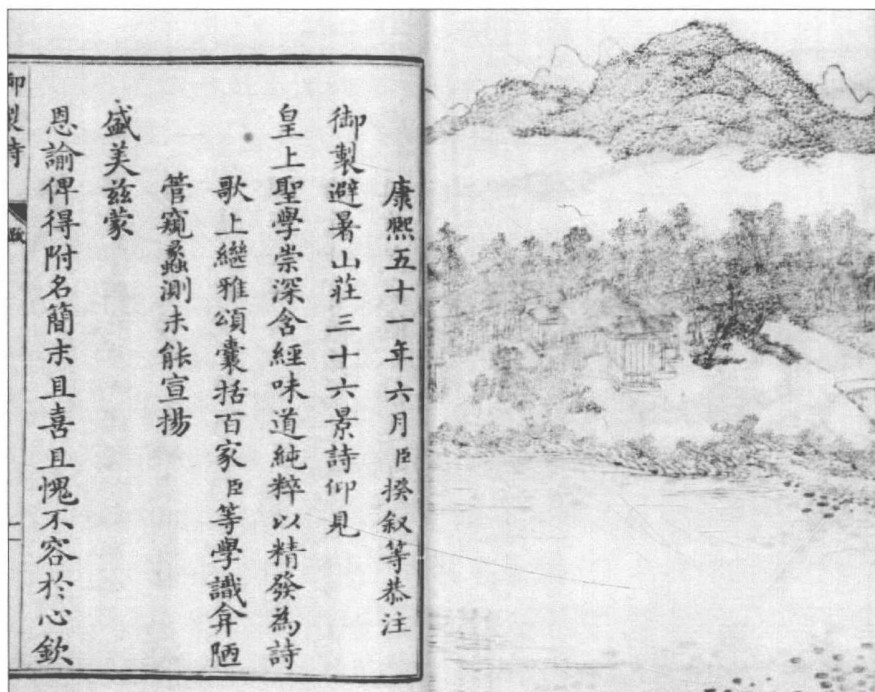 康熙五十一年六月臣揆叙等恭注
御製避暑山莊三十六景詩仰見
皇上聖學崇深含經味道純粹以精發為詩
歌上繼雅頌囊括百家臣等學識弇陋
管窺蠡測未能宣揚
盛美茲蒙
恩諭俾得附名簡末且喜且愧不容於心欽
御製詩
跋
一